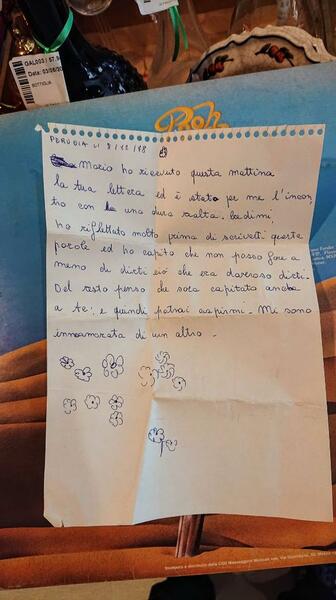 GAL003 / 57,9
Data: 03/05/
BOTTIGLIA
Poh
PERUGIA lì 8/12/78
Mario ho ricevuto questa mattina
la tua lettera ed è stato per me l'incon
tro con una dura realtà. Ladimi,
ho riflettuto molto prima di scriverti queste
parole ed ho capito che non posso fare a
meno di dirti ciò che era doveroso dirti.
Del resto penso che sara capitato anche
a te; e quindi potrai capirmi. Mi sono
innamorata di un altro.
Stampato e distribuito dalla CGD Messaggerie Musicali